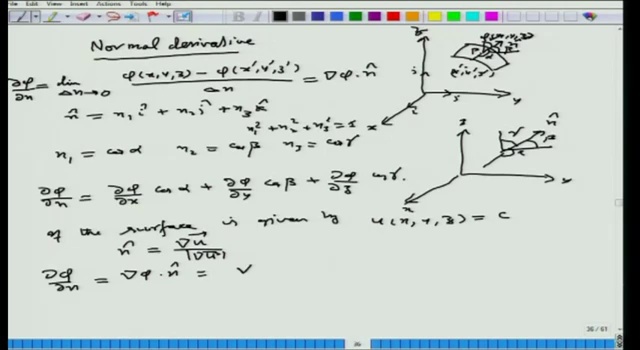 Edit View Insert Actions Tools Help
Normal derivative
∂φ/∂n = lim Δn→0 (φ(x,y,z) − φ(x',y',z'))/Δn = ∇φ·n̂
n̂ = n₁ î + n₂ ĵ + n₃ k̂
n₁² + n₂² + n₃² = 1
n₁ = cosα n₂ = cosβ n₃ = cosγ
∂φ/∂n = ∂φ/∂x cosα + ∂φ/∂y cosβ + ∂φ/∂z cosγ.
of the surface is given by u(x,y,z) = c
n̂ = ∇u/|∇u|
∂φ/∂n = ∇φ·n̂ = ∇
z
y
x
z
n̂
γ
β
α
y
x
36 / 61
36